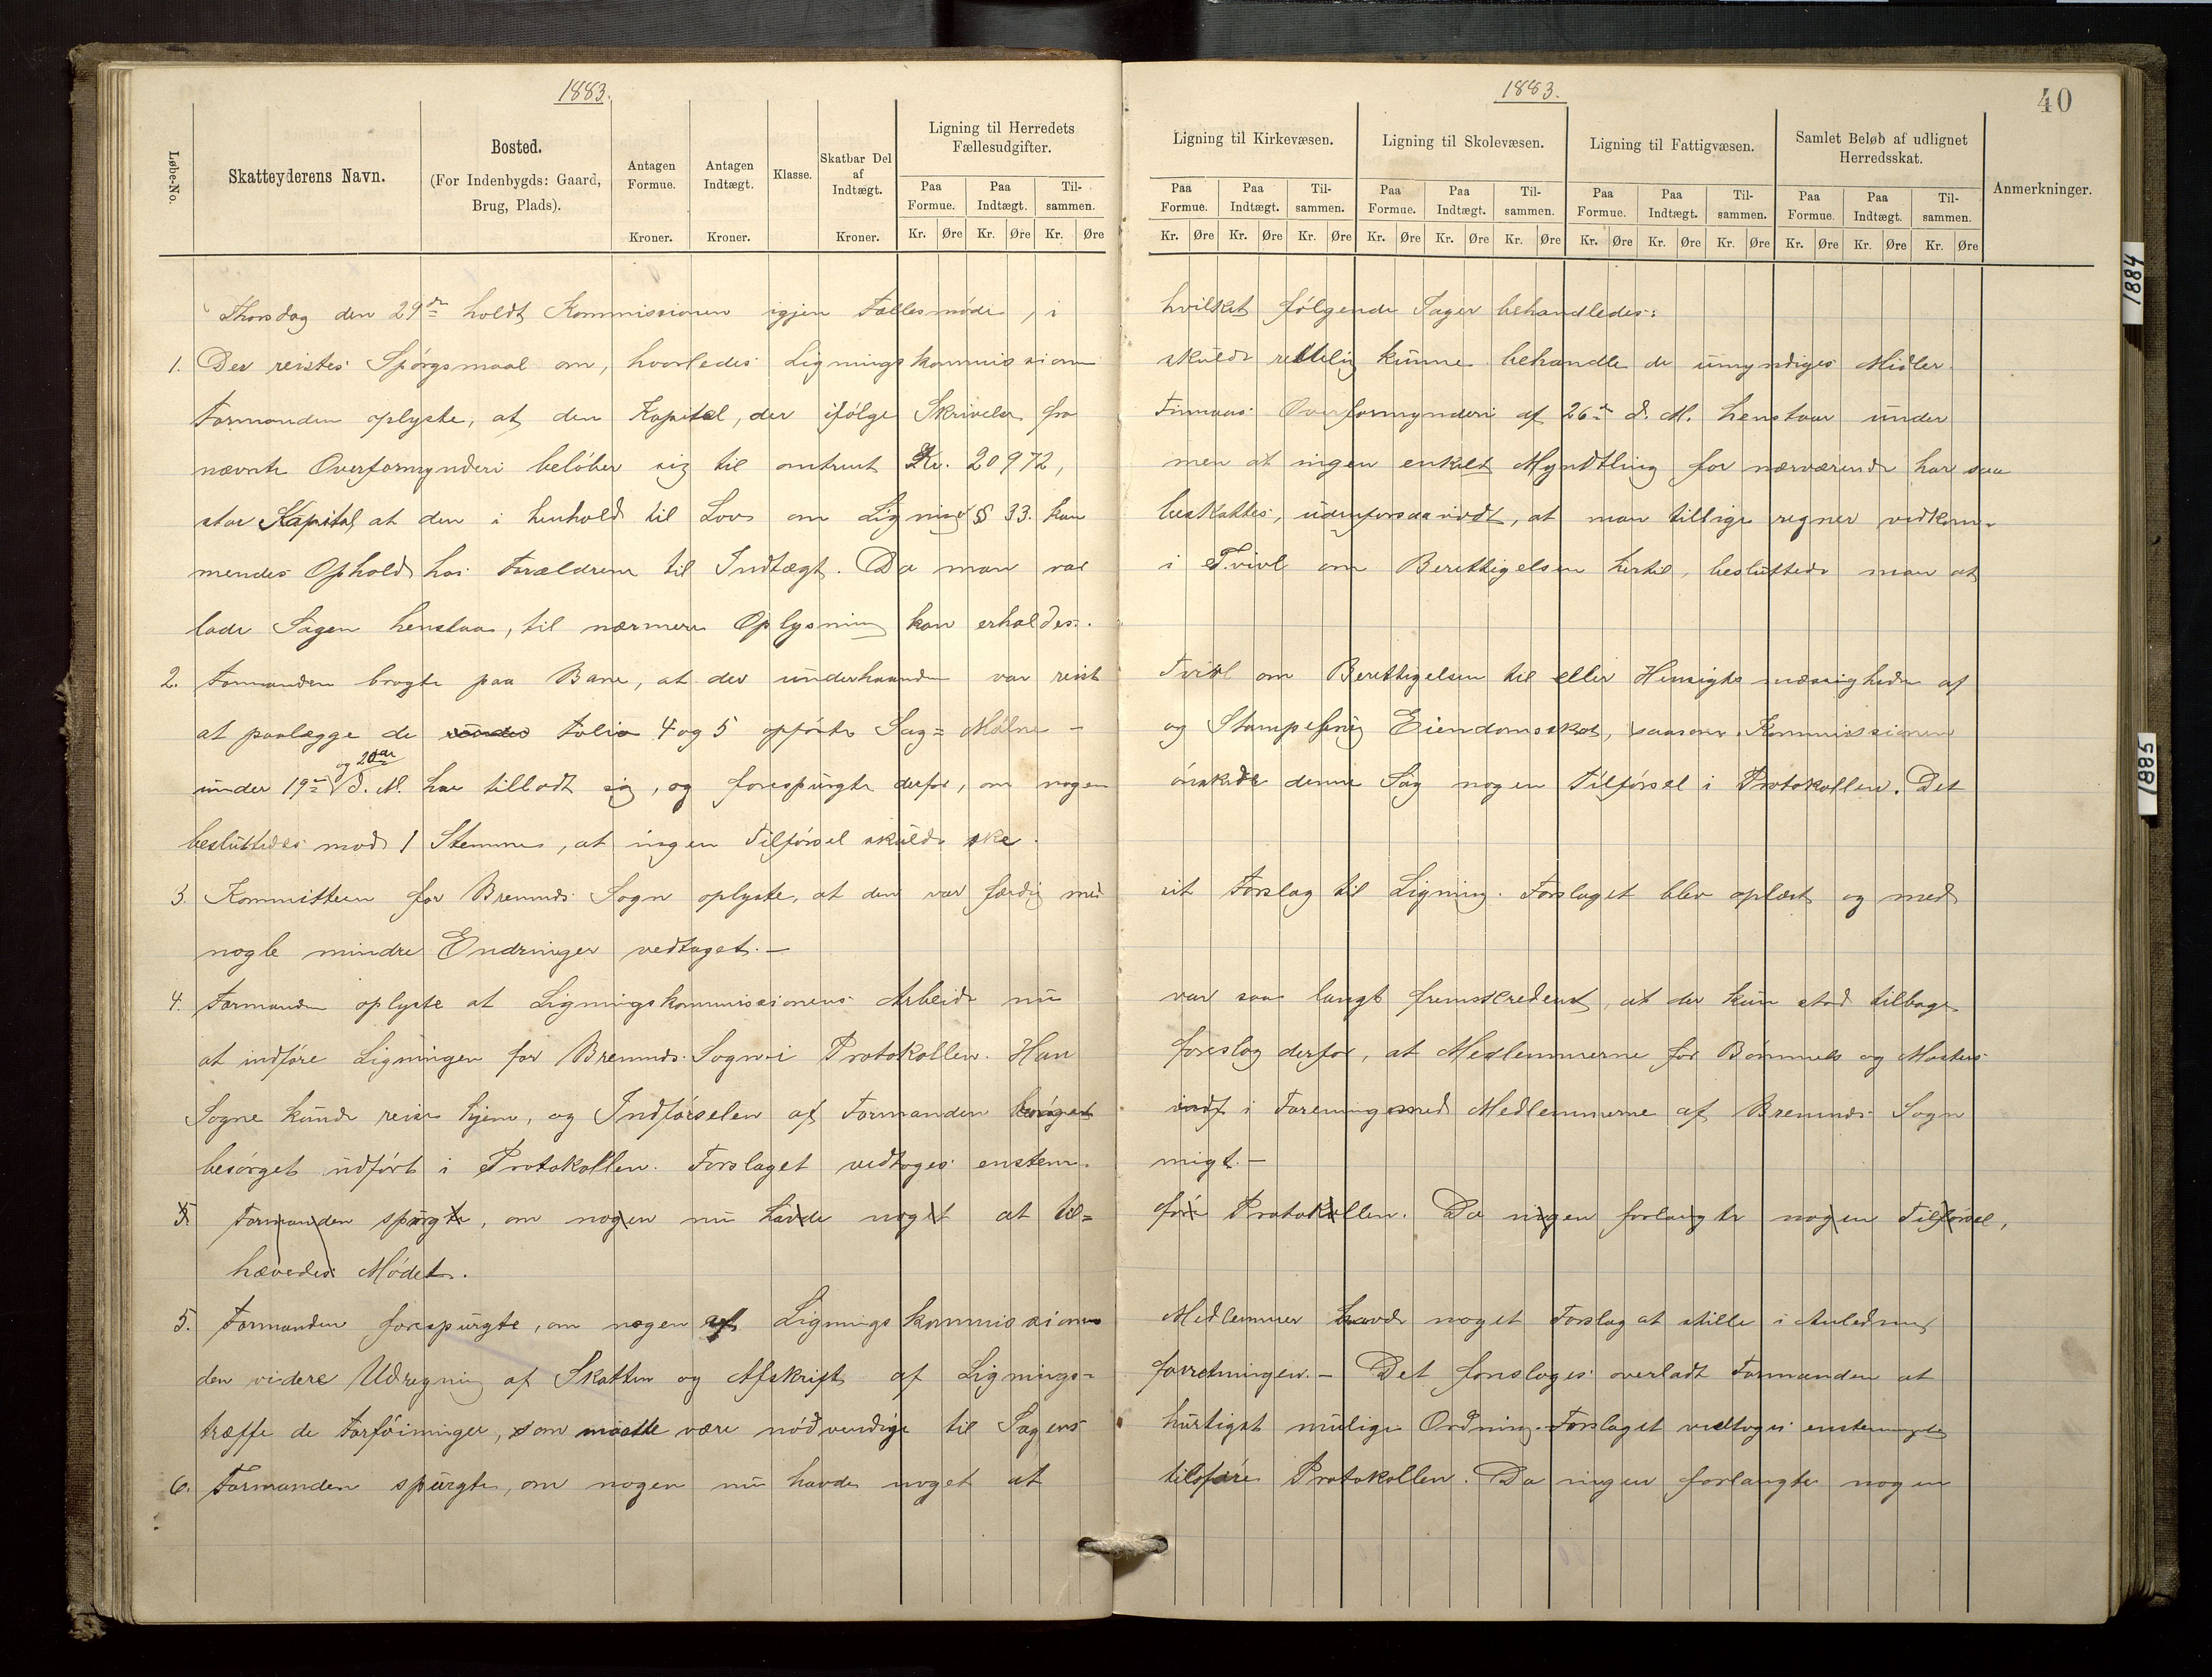 1883.
1883.
40
Løbe-No.
Skatteyderens Navn.
Bosted.
(For Indenbygds: Gaard,
Brug, Plads).
Antagen
Formue.
Kroner.
Antagen
Indtægt.
Kroner.
Klasse.
Skatbar Del
af
Indtægt.
Kroner.
Ligning til Herredets
Fællesudgifter.
Paa
Formue.
Paa
Indtægt.
Til-
sammen.
Kr. Øre Kr. Øre Kr. Øre
Ligning til Kirkevæsen.
Paa
Formue.
Paa
Indtægt.
Til-
sammen.
Kr. Øre Kr. Øre Kr. Øre
Ligning til Skolevæsen.
Paa
Formue.
Paa
Indtægt.
Til-
sammen.
Kr. Øre Kr. Øre Kr. Øre
Ligning til Fattigvæsen.
Paa
Formue.
Paa
Indtægt.
Til-
sammen.
Kr. Øre Kr. Øre Kr. Øre
Samlet Beløb af udlignet
Herredsskat.
Paa
Formue.
Paa
Indtægt.
Til-
sammen.
Kr. Øre Kr. Øre Kr. Øre
Anmerkninger.
Thorsdag den 29de holdt Kommissionen igjen Fællesmøde, i hvilket følgende Sager behandledes:
1. Der reistes Spørgsmaal om, hvorledes Ligningskommissionen skulde rettelig kunne behandle de umyndiges Midler.
Formanden oplyste, at den Kapital, der ifølge Skrivelse fra Finnaas Overformynderi af 26de d. M. henstaar under
nævnte Overformynderi beløber sig til omtrent Kr. 20972, men at ingen enkelt Myndtling for nærværende har saa
stor Kapital, at den i henhold til Lov om Ligning § 33. kan beskattes, udenforsaavidt, at man tillige regner vedkom-
mendes Ophold hos Forældrene til Indtægt. Da man var i Tvivl om Berettigelsen hertil, besluttede man at
lade Sagen henstaa, til nærmere Oplysning kan erholdes.
2. Formanden bragte paa Bane, at der underhaanden var reist Tvivl om Berettigelsen til eller Hensigtsmæssigheden af
at paalægge de under Folio 4 og 5 opførte Sag= Mølne- og Stampebrug Eiendomsskat, saasom Kommissionen
under 19de og 20de d. M. har tilladt sig, og forespurgte derfor, om nogen ønskede denne Sag nogen Tilførsel i Protokollen. Det
besluttedes mod 1 Stemme, at ingen Tilførsel skulde ske.
3. Kommitteen for Bremnes Sogn oplyste, at den var færdig med sit Forslag til Ligning. Forslaget blev oplæst og med
nogle mindre Endringer vedtaget.-
4. Formanden oplyste at Ligningskommissionens Arbeide nu var saa langt fremskredent, at der kun stod tilbage
at indføre Ligningen for Bremnes Sogn i Protokollen. Han foreslog derfor, at Medlemmerne for Bømmels og Mosters
Sogne kunde reise hjem, og Indførselen af Formanden besørget indf i Forening med Medlemmerne af Bremnes Sogn
besørget udført i Protokollen. Forslaget vedtoges enstem- migt.-
5. Formanden spurgte, om nogen nu havde noget at til= føre Protokollen. Da ingen forlangte nogen Tilførsel,
hævedes Mødet.
5. Formanden forespurgte, om nogen af Ligningskommissionens Medlemmer havde noget Forslag at stille i Anledning
den videre Udregning af Skatten og Afskrift af Lignings= forretningen.- Det foresloges overladt Formanden at
træffe de Forføininger, som maatte være nødvendige til Sagens hurtigst mulige Ordning. Forslaget vedtoges enstemmigt
6. Formanden spurgte, om nogen nu havde noget at tilføre Protokollen. Da ingen forlangte nogen
1884
1885